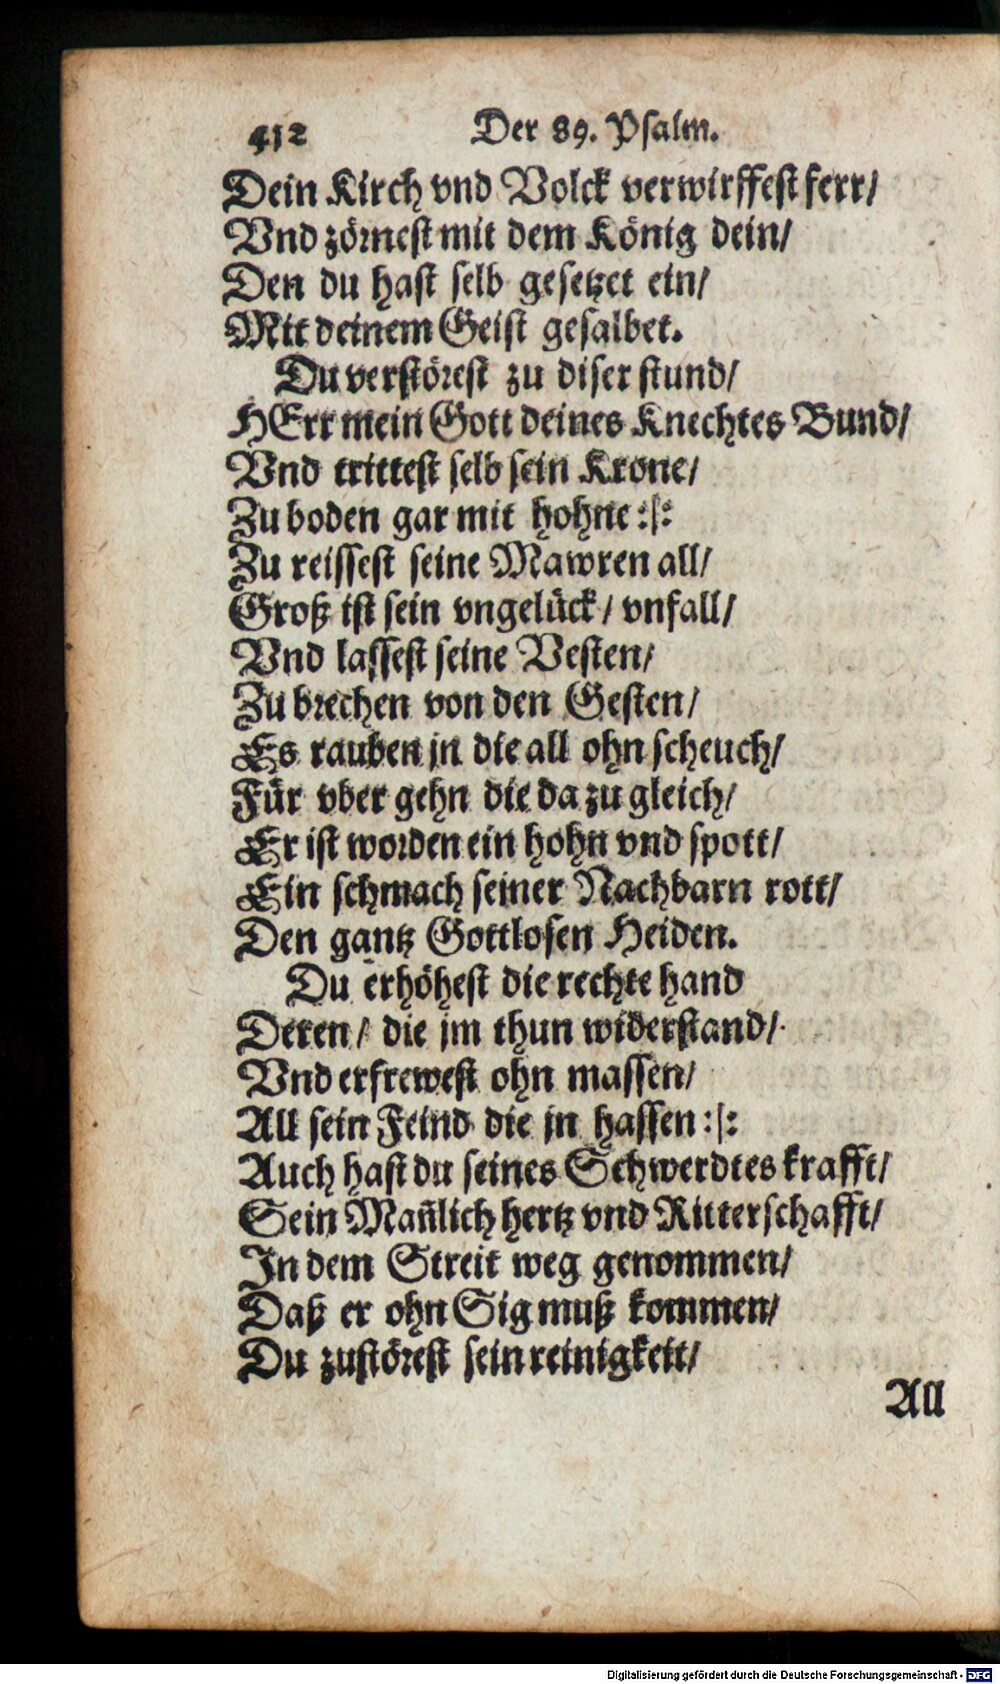 412 Der 89. Psalm.
Dein Kirch vnd Volck verwirffest ferr/
Vnd zörnest mit dem König dein/
Den du hast selb gesetzet ein/
Mit deinem Geist gesalbet.
Du verstörest zu diser stund/
HErr mein Gott deines Knechtes Bund/
Vnd trittest selb sein Krone/
Zu boden gar mit hohne :/:
Zu reissest seine Mawren all/
Groß ist sein vngelück/ vnfall/
Vnd lassest seine Vesten/
Zu brechen von den Gesten/
Es rauben jn die all ohn scheuch/
Für vber gehn die da zu gleich/
Er ist worden ein hohn vnd spott/
Ein schmach seiner Nachbarn rott/
Den gantz Gottlosen Heiden.
Du erhöhest die rechte hand
Deren/ die jm thun widerstand/
Vnd erfrewest ohn massen/
All sein Feind die jn hassen :/:
Auch hast du seines Schwerdtes krafft/
Sein Mañlich hertz vnd Ritterschafft/
In dem Streit weg genommen/
Daß er ohn Sig muß kommen/
Du zustörest sein reinigkeit/
All
Digitalisierung gefördert durch die Deutsche Forschungsgemeinschaft - DFG